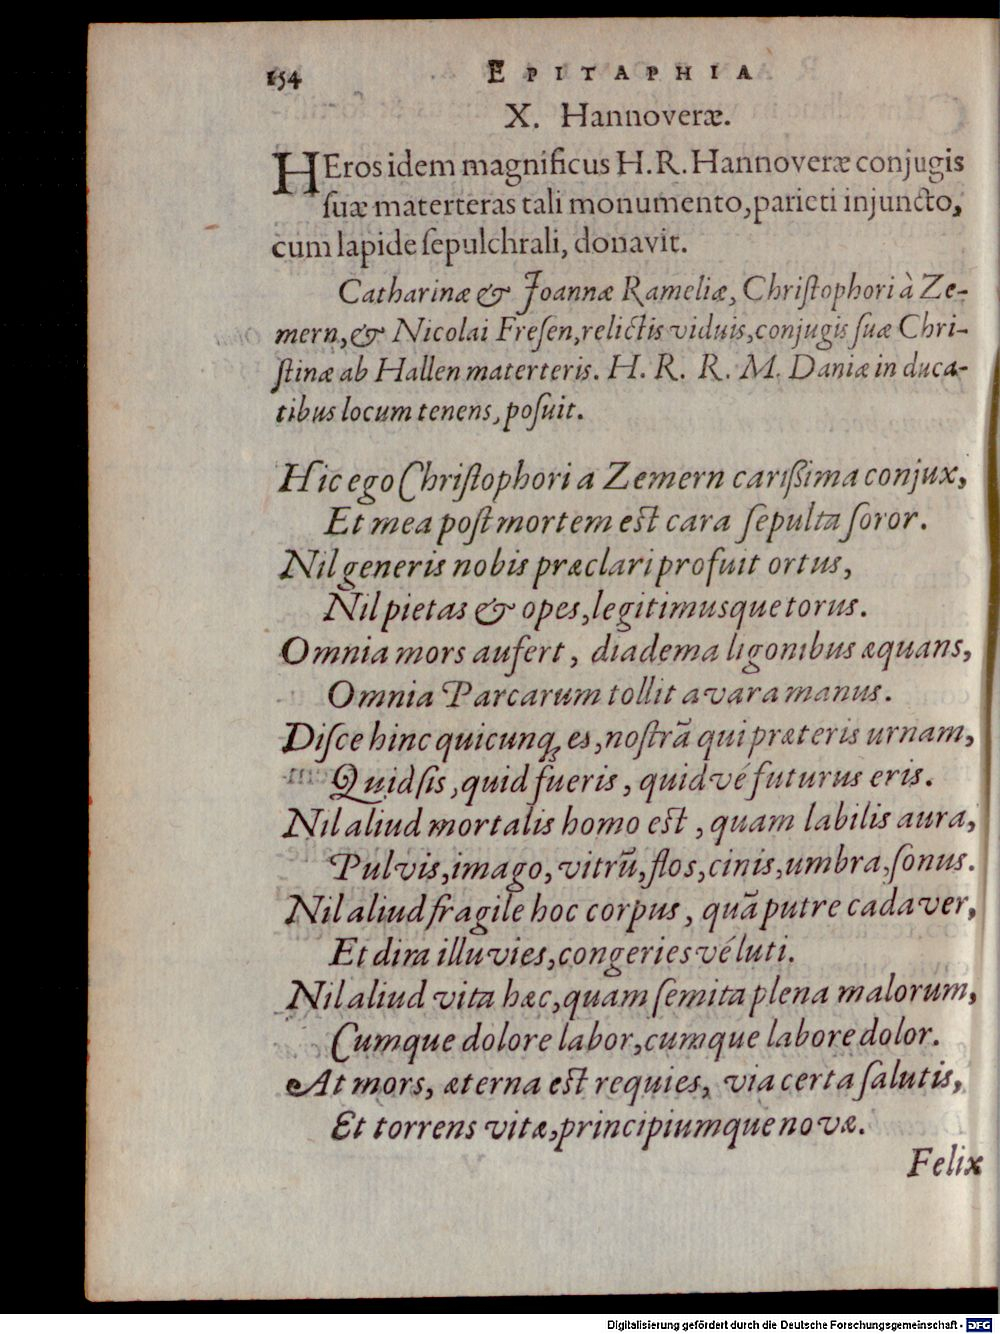 154 EPITAPHIA
X. Hannoveræ.
HEros idem magnificus H. R. Hannoveræ conjugis
ſuæ materteras tali monumento, parieti injuncto,
cum lapide ſepulchrali, donavit.
Catharinæ & Joannæ Rameliæ, Chriſtophori à Ze-
mern, & Nicolai Freſen, relictis viduis, conjugis ſuæ Chri-
ſtinæ ab Hallen materteris. H. R. R. M. Daniæ in duca-
tibus locum tenens, poſuit.
Hic ego Chriſtophori a Zemern cariſſima conjux,
Et mea poſt mortem eſt cara ſepulta ſoror.
Nil generis nobis præclari profuit ortus,
Nil pietas & opes, legitimusque torus.
Omnia mors aufert, diadema ligonibus æquans,
Omnia Parcarum tollit avara manus.
Diſce hinc quicunq; es, noſtrã qui præteris urnam,
Quid ſis, quid fueris, quid vé futurus eris.
Nil aliud mortalis homo eſt, quam labilis aura,
Pulvis, imago, vitrũ, flos, cinis, umbra, ſonus.
Nil aliud fragile hoc corpus, quã putre cadaver,
Et dira illuvies, congeries vé luti.
Nil aliud vita hæc, quam ſemita plena malorum,
Cumque dolore labor, cumque labore dolor.
At mors, æterna eſt requies, via certa ſalutis,
Et torrens vitæ, principiumque novæ.
Felix
Digitalisierung gefördert durch die Deutsche Forschungsgemeinschaft - DFG